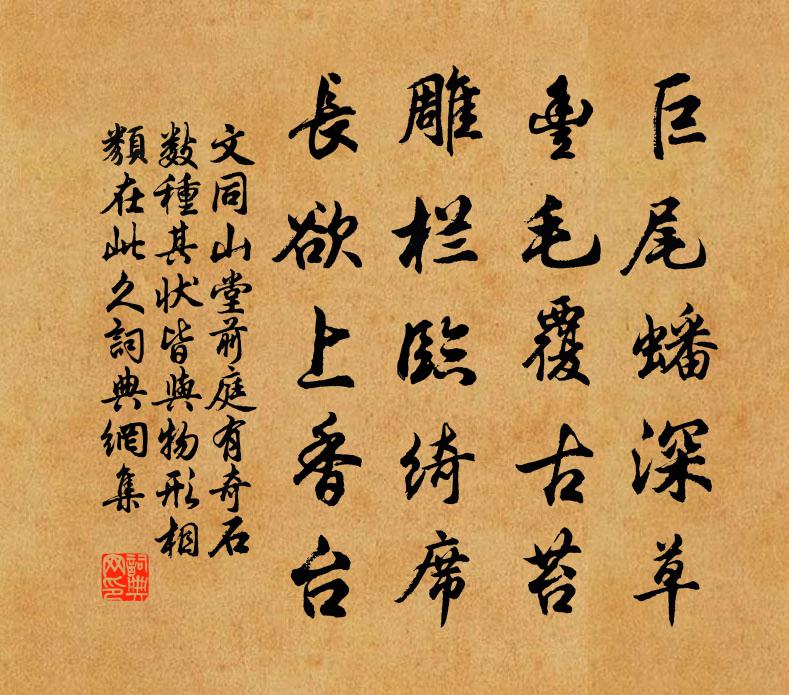 巨尾蟠深草
豊毛覆古苔
雕栏臨綺席
長欲上香台
文同山堂前庭有奇石
数種其状皆與物形相
類在此久詞典網集
詞典網印